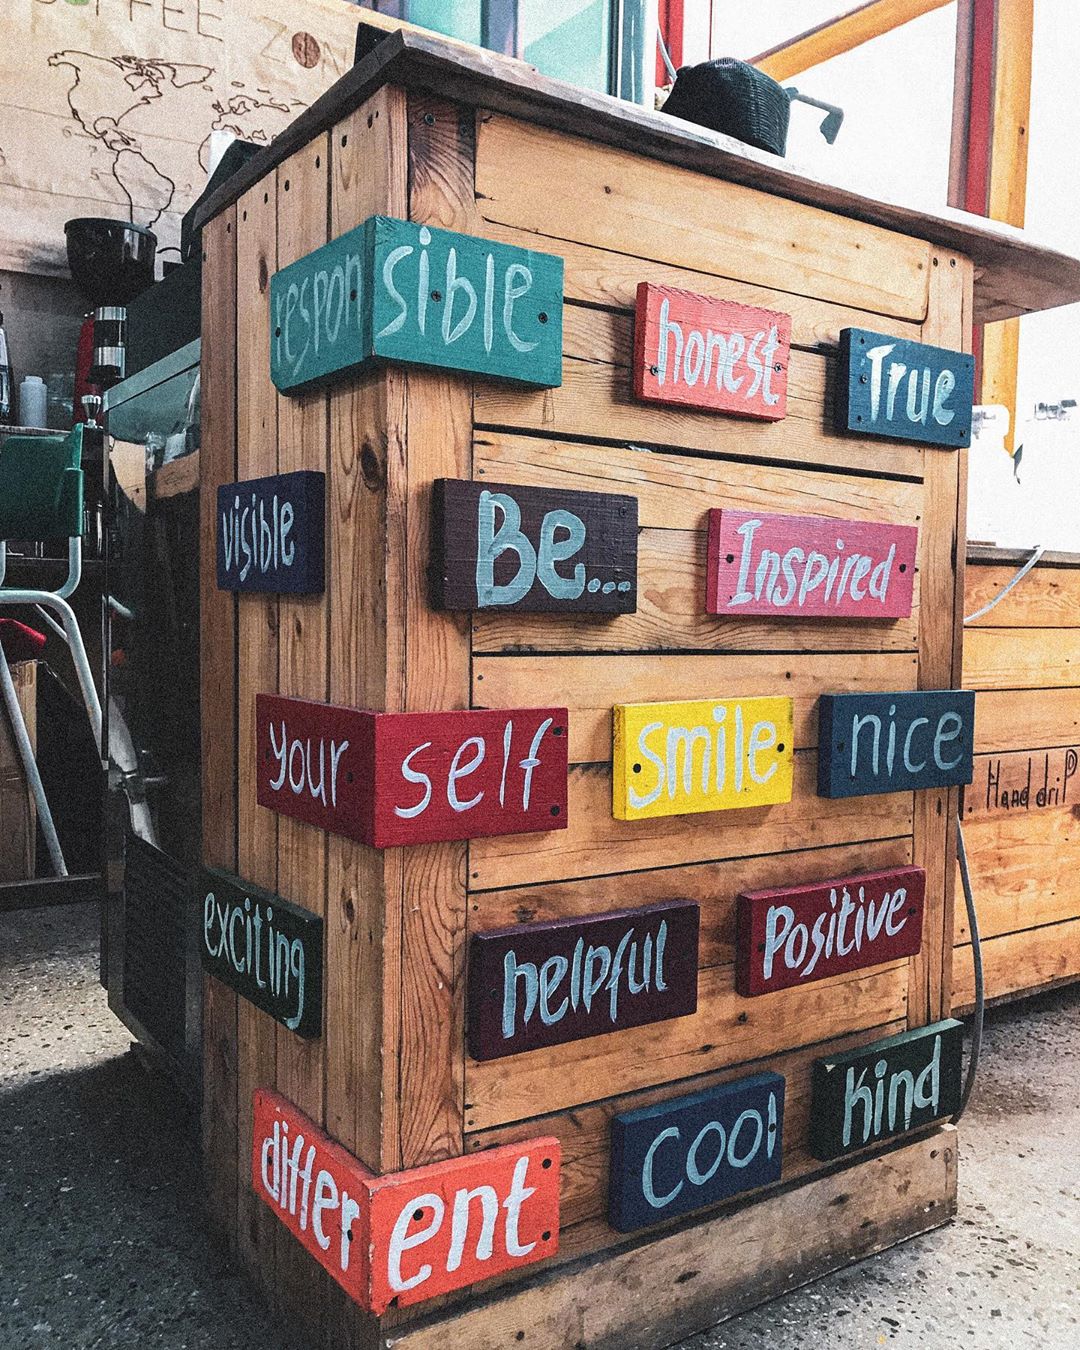 COFFEE ZON
responsible
honest
True
visible
Be...
Inspired
yourself
smile
nice
Hand driP
exciting
helpful
Positive
different
cool
kind